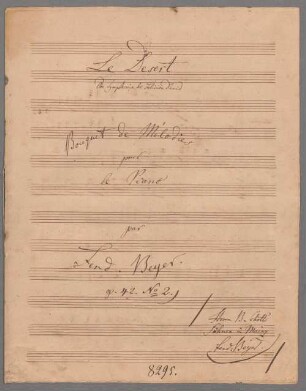 Le Désert
Bouquet de Mélodies
pour
le Piano
par
Ferd. Beyer.
op. 42. No 2.
B. Schott
à Mainz
Ferd. Beyer
8295.